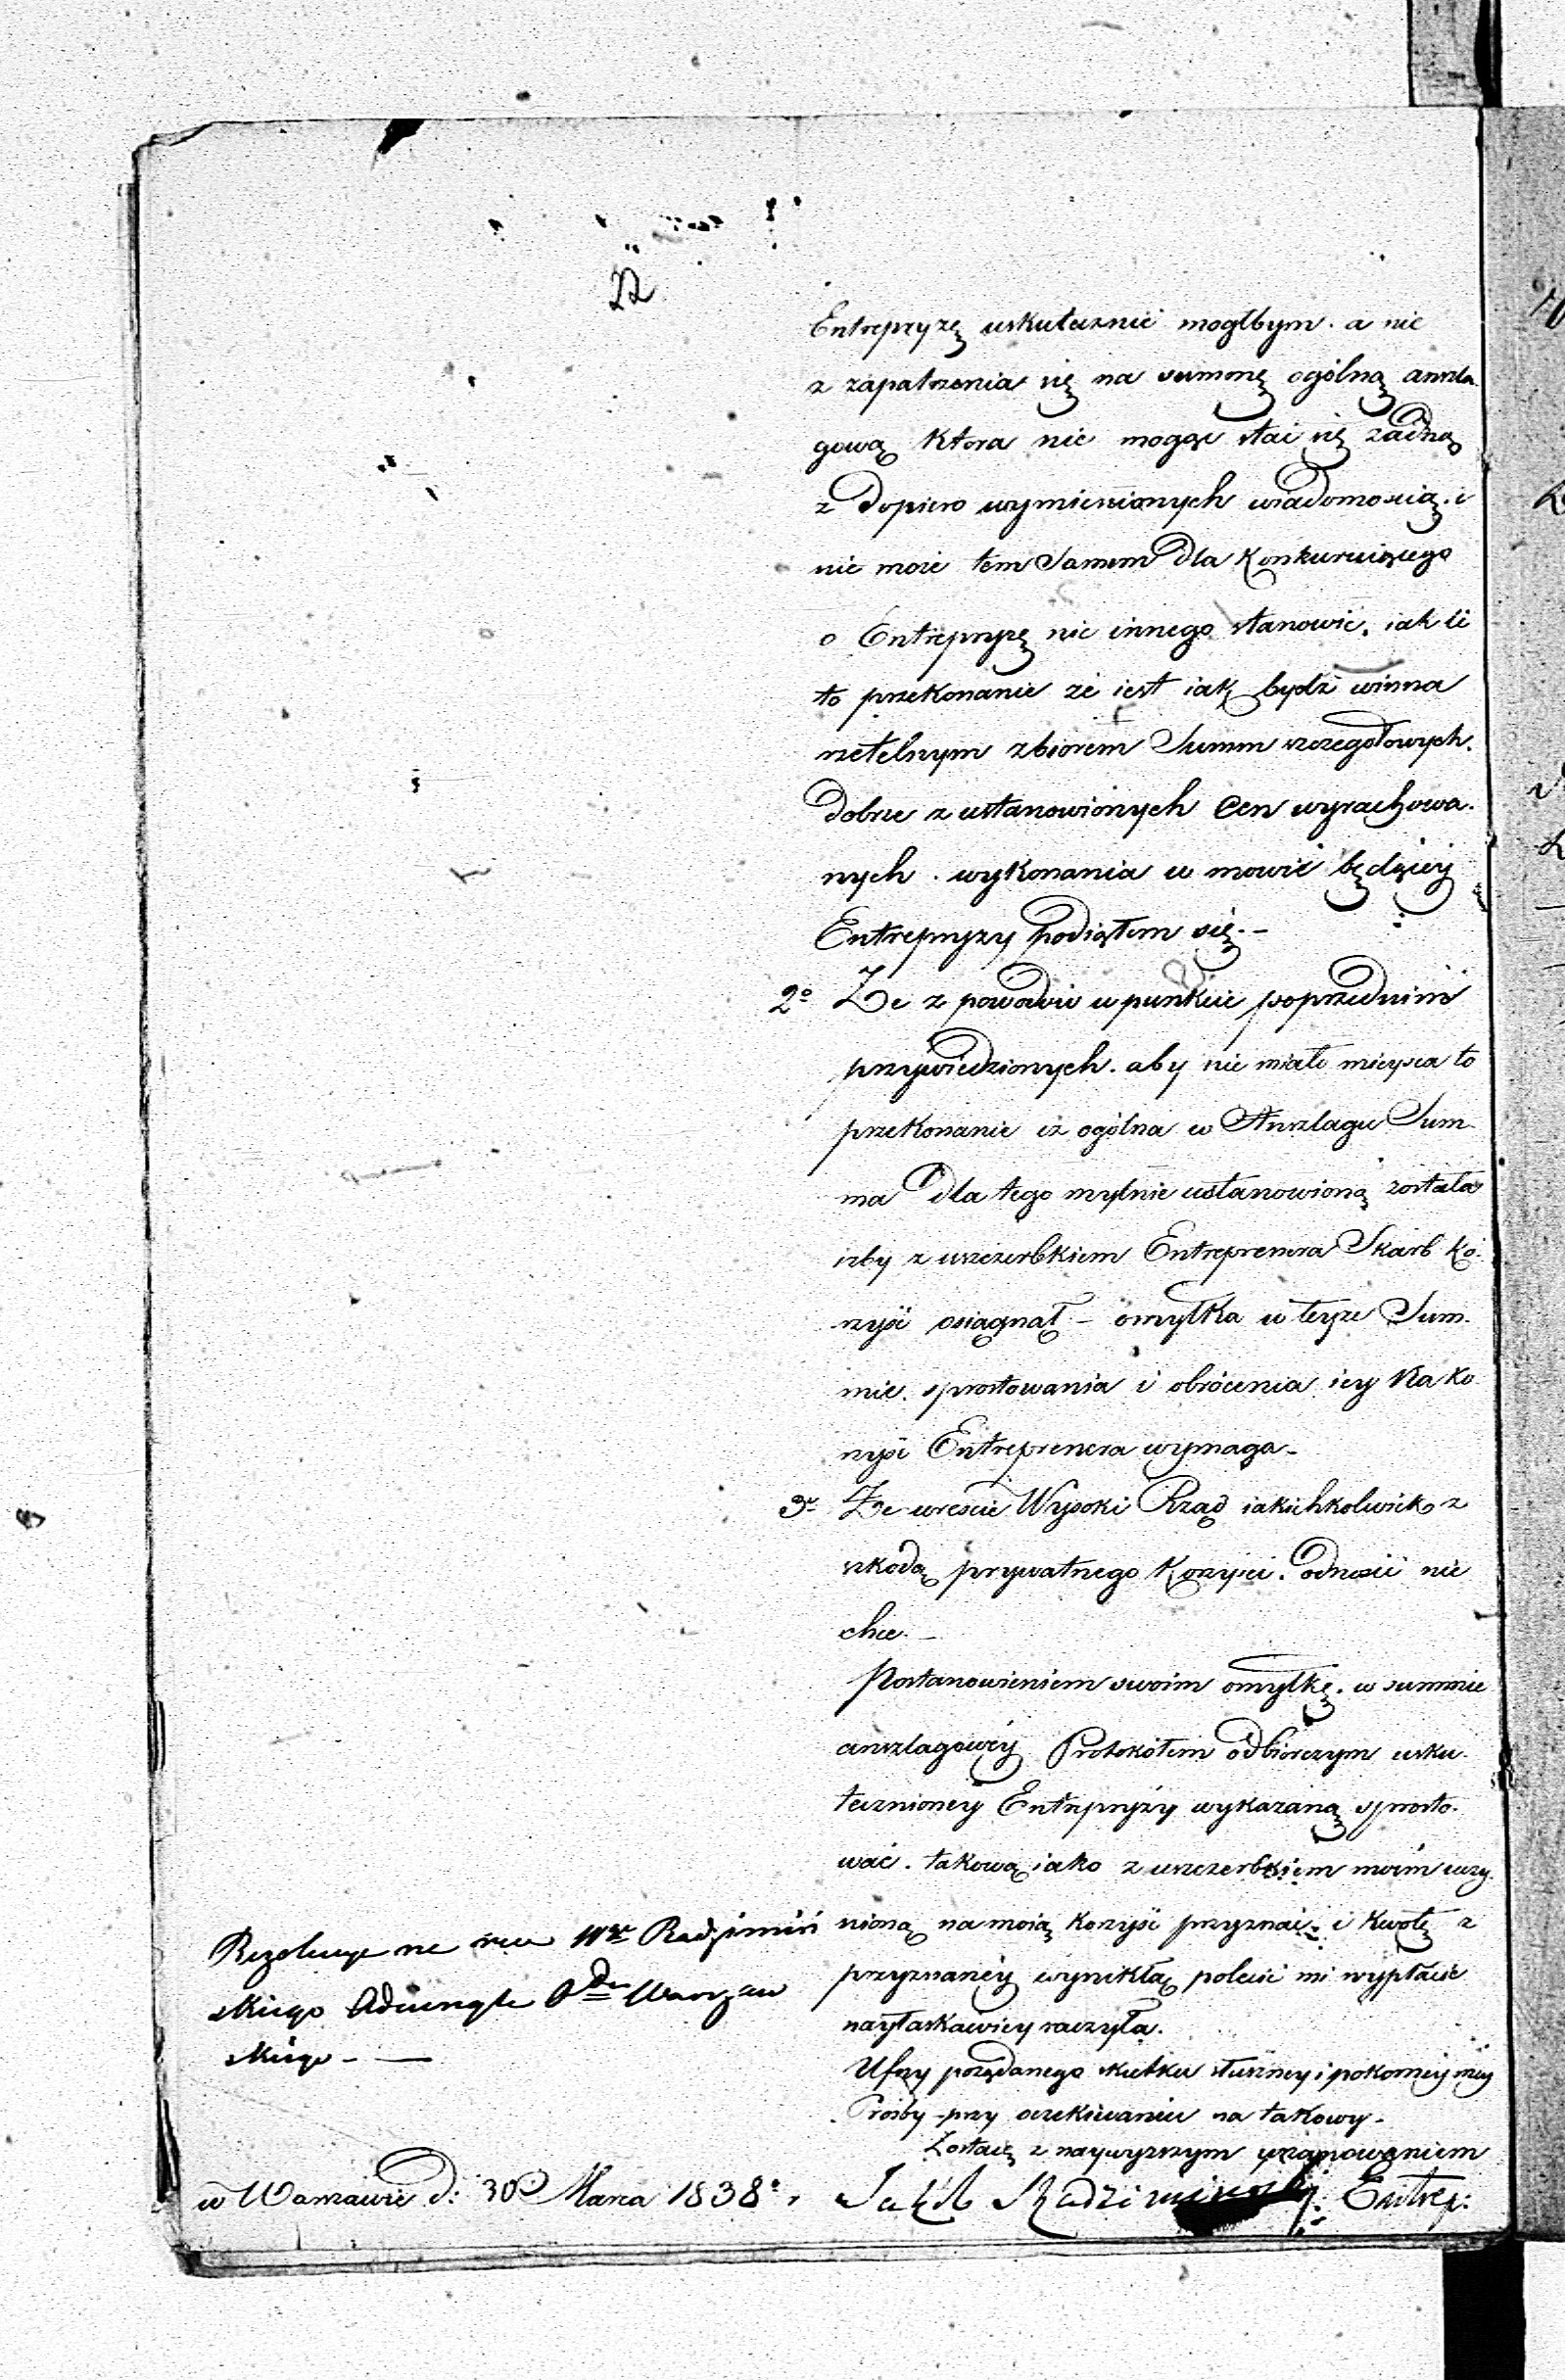 22
Entrepryzę uskutecznić mogłbym. a nie
z zapatrzenia się na summę ogólną anszla
gową ktora nie mogąc stać się żadną
z dopiero wymienionych wiadomością. i
nie może tem Samem dla Konkuruiącego
o Entrepryzę nic innego stanowić. iak li
to przekonanie że iest iak bydź winna
rzetelnym zbiorem Summ szczegołowych.
dobrze z ustanowionych Cen wyrachowa.
nych. wykonania w mowie będącey
Entrepryzy podiąłem się. –
2o Ze z powodów w punkcie poprzednim
przywiedzionych. aby nie miało mieysca to
przekonanie iz ogólna w Anszlagu Sum
ma dla tego mylnie ustanowioną została
iżby z uszczerbkiem Entreprenera Skarb ko
rzyść osiągnął – omyłka w teyże Sum.
mie. sprostowania i obrócenia iey na ko
rzyść Entreprenera wymaga –
3o Ze wreście Wysoki Rząd iakichkolwiek z
szkodą prywatnego Korzyści. odnosić nie
chce. –
Postanowieniem swoim omyłkę. w summie
anszlagowéy Protokółem odbiorczym usku.
tecznioney Entrepryzy wykazaną sprosto.
wać. takową iako z uszczerbkiem moim uczy
nioną na moią korzyść przyznać i kwotę z
przyznanéy wynikłą polecić mi wypłacić
nayłaskawiey raczyła.
Ufny pożądanego skutku słuszney i pokorney méy
Prośby – przy oczekiwaniu na takowy –
Zostaię z naywyższym uszanowaniem
Rezolucye na ręce Wgo Radzimiń
skiego Adiunkta Odu Warszaw
skiego – —
w Warszawie d: 30 Marca 1838.
Jakób Radzimiński Entrep: